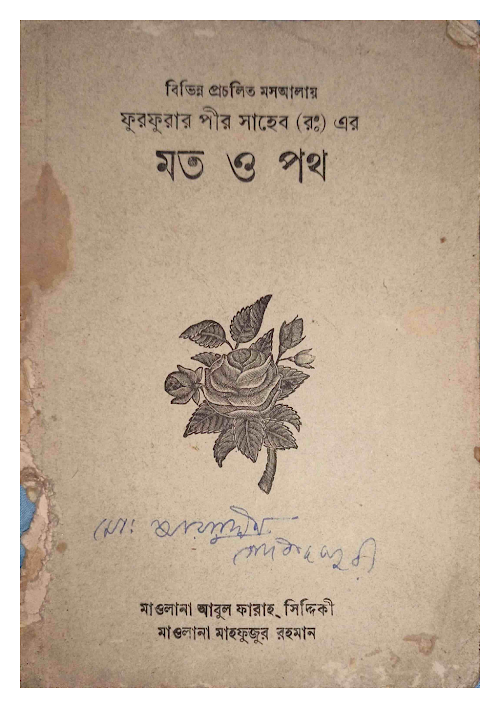 বিভিন্ন প্রচলিত মসআলায়
ফুরফুরার পীর সাহেব (রঃ) এর
মত ও পথ
মোঃ
মাওলানা আবুল ফারাহ্ সিদ্দিকী
মাওলানা মাহফুজুর রহমান